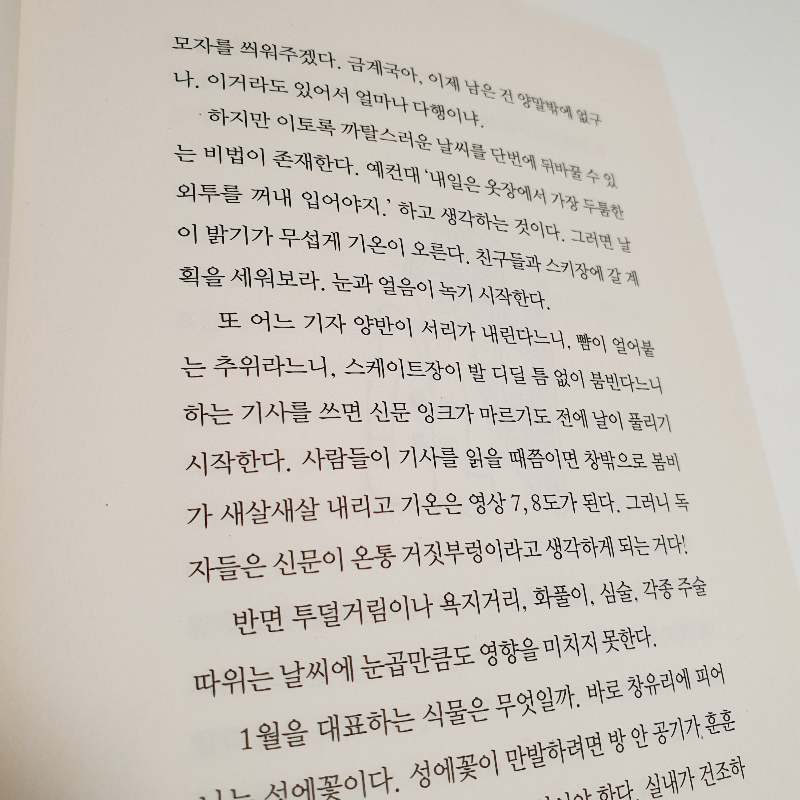 모자를 씌워주겠다. 금계국아, 이제 남은 건 양딸밖에 없구
나. 이거라도 있어서 얼마나 다행이냐.
하지만 이토록 까탈스러운 날씨를 단번에 뒤바꿀 수 있
는 비법이 존재한다. 예컨대 ‘내일은 옷장에서 가장 두툼한
외투를 꺼내 입어야지.’ 하고 생각하는 것이다. 그러면 날
이 밝기가 무섭게 기온이 오른다. 친구들과 스키장에 갈 계
획을 세워보라. 눈과 얼음이 녹기 시작한다.
또 어느 기자 양반이 서리가 내린다느니, 뺨이 얼어붙
는 추위라느니, 스케이트장이 발 디딜 틈 없이 붐빈다느니
하는 기사를 쓰면 신문 잉크가 마르기도 전에 날이 풀리기
시작한다. 사람들이 기사를 읽을 때쯤이면 창밖으로 봄비
가 새살새살 내리고 기온은 영상 7, 8도가 된다. 그러니 독
자들은 신문이 온통 거짓부렁이라고 생각하게 되는 거다!
반면 투덜거림이나 욕지거리, 화풀이, 심술, 각종 주술
따위는 날씨에 눈곱만큼도 영향을 미치지 못한다.
1월을 대표하는 식물은 무엇일까. 바로 창유리에 피어
나는 성에꽃이다. 성에꽃이 만발하려면 방 안 공기가 훈훈
한다. 실내가 건조하